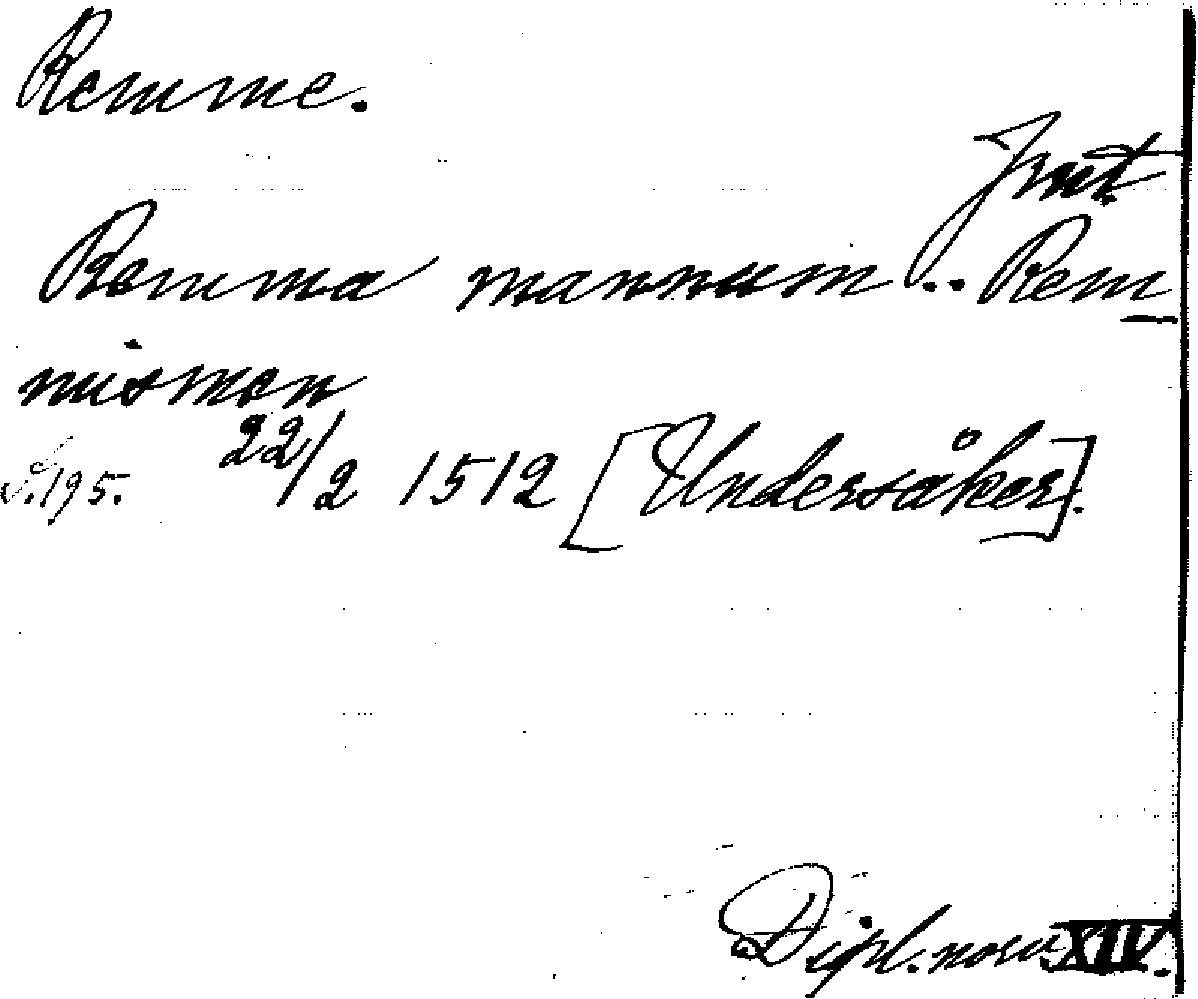 Remme.
Jmt
Remma mannum .. Rem
nismen
S.195. 22/2 1512 [Undersåker].
Dipl. norv. XIV.